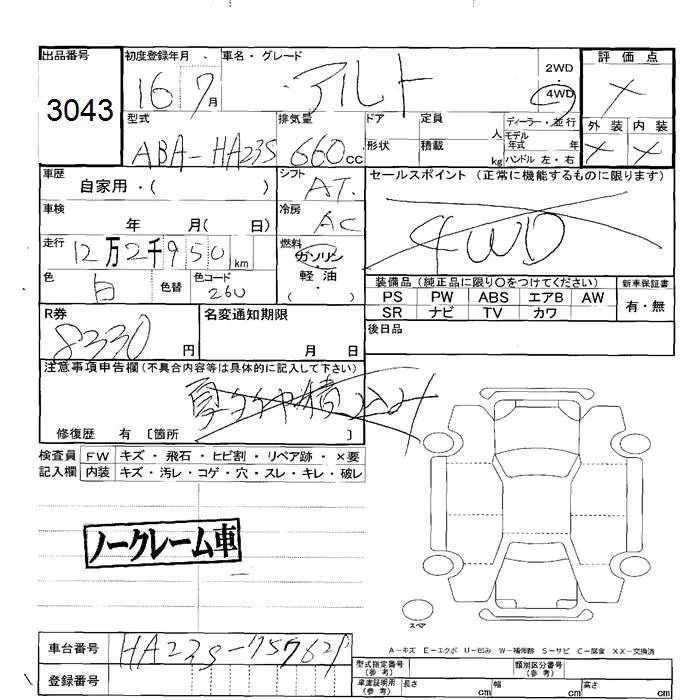 出品番号 初度登録年月 車名・グレード 2WD 評価点
3043 16 7月 アルト 4WD
外装 内装
型式 排気量 ドア 定員 人 ディーラー・並行
ABA-HA23S 660cc 形状 積載 kg モデル年式 年 ハンドル 左・右
車歴 自家用・( ) シフト AT セールスポイント(正常に機能するものに限ります)
車検 年 月( 日) 冷房 AC 4WD
走行 12万2千950km 燃料 ガソリン 軽油 ( ・ )
色 白 色替 色コード 26U
装備品(純正品に限り〇をつけてください) 新車保証書
PS PW ABS エアB AW 有・無
SR ナビ TV カワ
R券 8330円 名変通知期限 月 日 後日品
注意事項申告欄(不具合内容等は具体的に記入して下さい)
修復歴 有 〔箇所 〕
検査員 FW キズ・飛石・ヒビ割・リペア跡・×要
記入欄 内装 キズ・汚レ・コゲ・穴・スレ・キレ・破レ
ノークレーム車
スペア
A-キズ E-エクボ U-凹み W-補修跡 S-サビ C-腐食 XX-交換済
車台番号 HA23S- 型式指定番号(参考) 類別区分番号(参考)
登録番号 車庫証明用(参考) 長さ cm 幅 cm 高さ cm